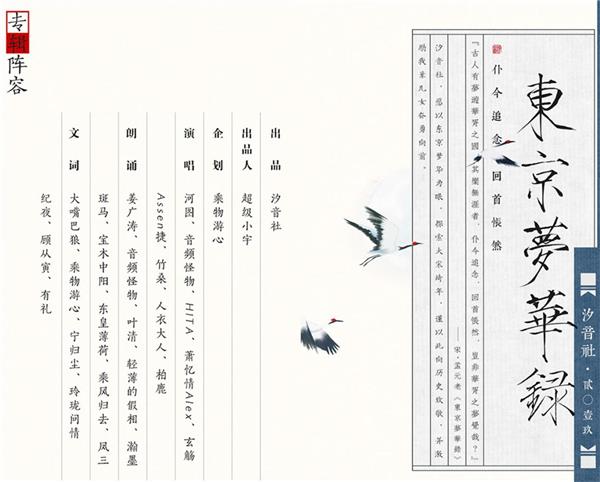 東京夢華録
汐音社·貳〇壹玖
仆今追念 回首悵然
『古人有夢遊華胥之國，其樂無涯者，仆今追念，回首悵然，豈非華胥之夢覺哉？』
——宋·孟元老《東京夢華録》
汐音社，愿以东京梦华为眠，探索大宋绮年，谨以此向历史致敬，并激
励我辈儿女奋勇向前。
出品 汐音社
出品人 超级小宇
企划 乘物游心
演唱 河图、音频怪物、HITA、萧忆情Alex、玄觞
Assen捷、竹桑、人衣大人、柏鹿
朗诵 姜广涛、音频怪物、叶清、轻薄的假相、瀚墨
斑马、宝木中阳、东皇薄荷、乘风归去、凤三
文词 大嘴巴狼、乘物游心、宁归尘、玲珑问情
纪夜、顾从寅、有礼
专辑阵容